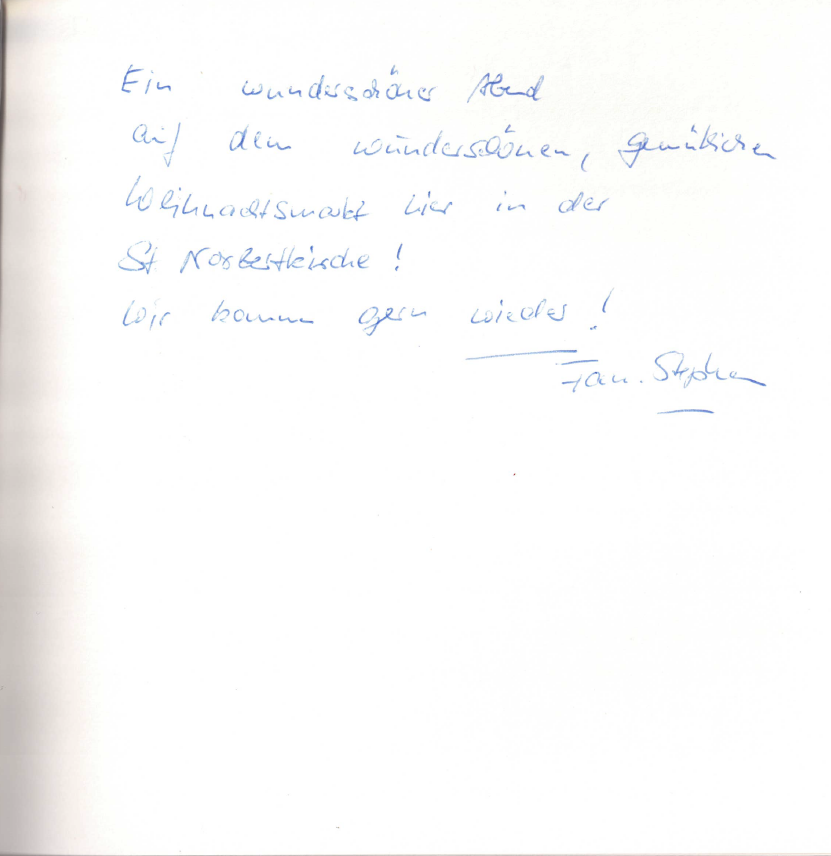 Ein wunderschöner Abend
auf dem wunderschönen, gemütlichen
Weihnachtsmarkt hier in der
St Norbertkirche!
Wir kommen gern wieder!
Fam. Stephan